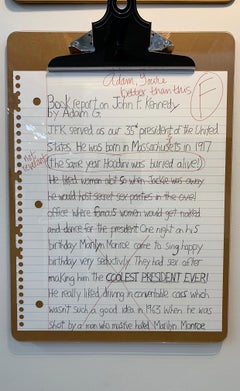 Adam, you're
better than this
F
Book report on John F. Kennedy
by Adam G.
JFK served as our 35th president of the United
States. He was born in Massachusets in 1917
(the same year Houdini was buried alive!)
not relevant
He liked woman alot so when Jackie was away
he would host secret sex parties in the ovel
office where famous women would get naked
and dance for the president. One night on his
birthday Marilyn Monroe came to sing happy
birthday very seductivly. They had sex after
making him the COOLEST PRESIDENT EVER!
He really liked driving in convertable cars which
wasn't such a good idea in 1963 when he was
shot by a man who must've hated Marilyn Monroe